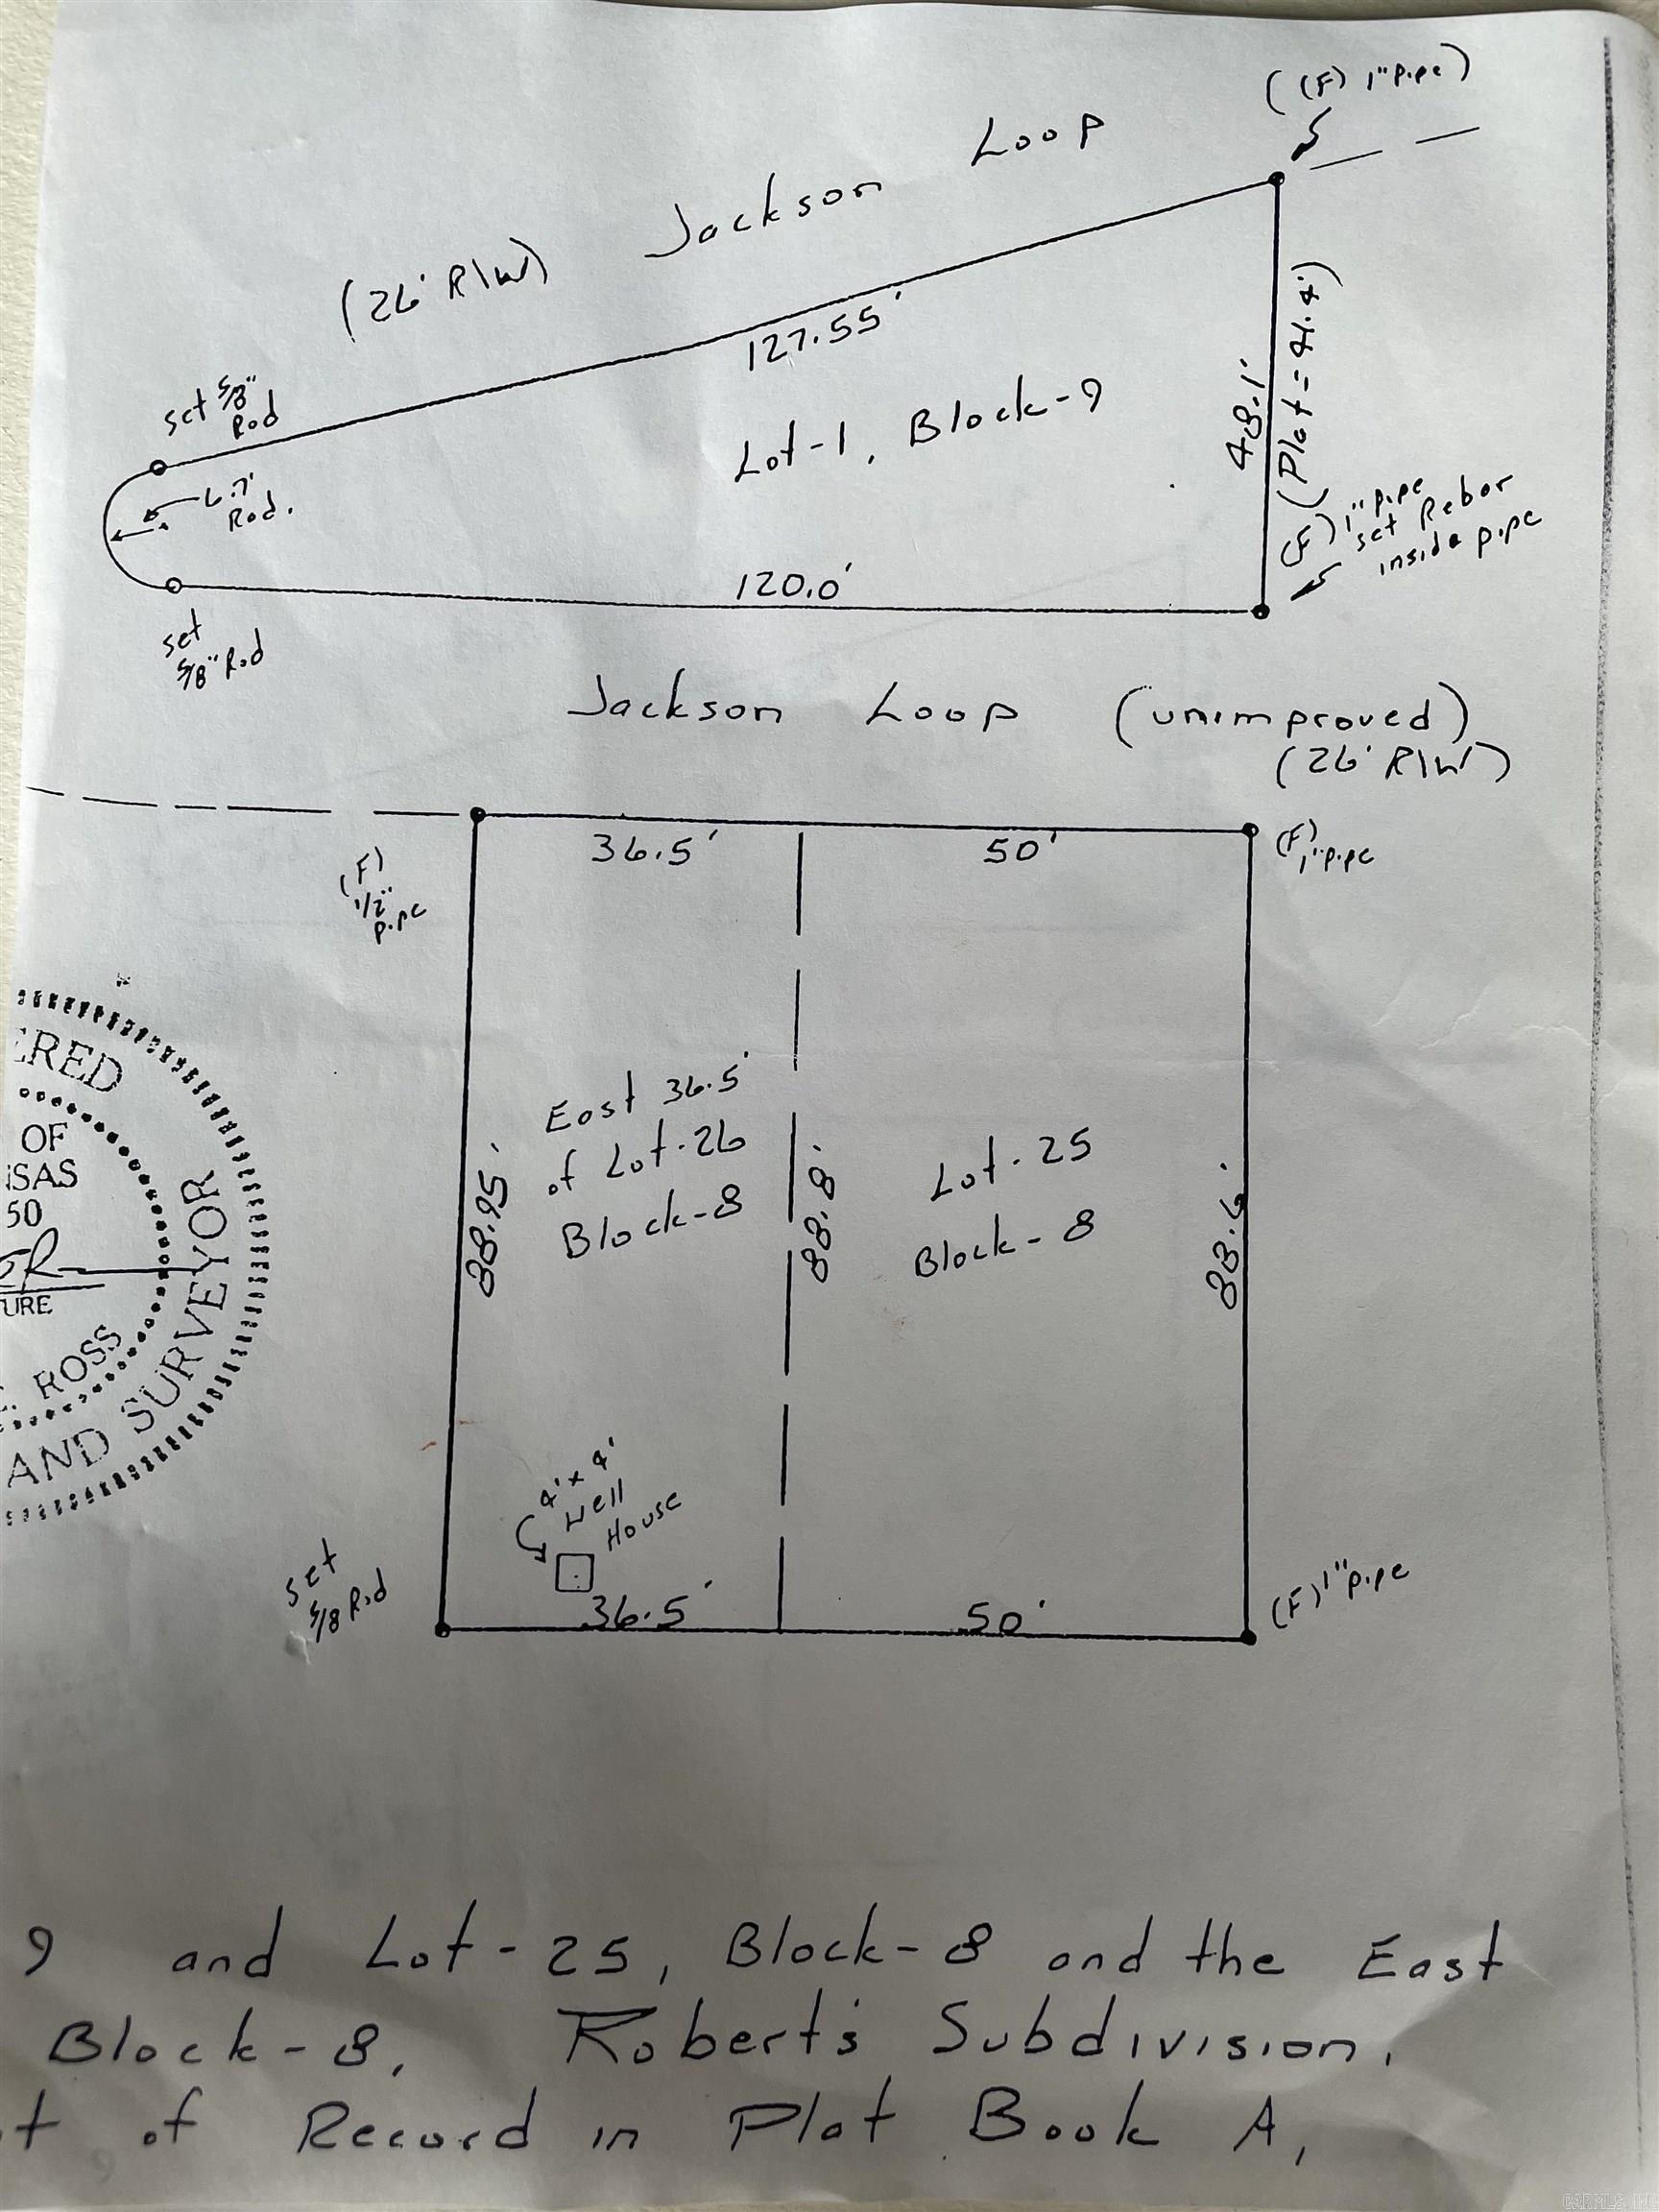 ((F) 1" pipe)
Jackson Loop
(26' R/W)
127.55'
set 5/8"
Rod
Lot-1, Block-9
48.1'
(Plat = 41.4')
6.7'
Rad.
(F) 1" pipe
set Rebar
inside pipe
120.0'
set
5/8" Rod
Jackson Loop (unimproved)
(26' R/W)
36.5'
50'
(F)
1" pipe
(F)
1/2"
pipe
East 36.5'
of Lot-26
Block-8
88.95'
88.8'
Lot-25
Block-8
88.6'
ERED
OF
NSAS
50
URE
ROSS
AND SURVEYOR
4' x 4'
Well
House
set
5/8 Rod
36.5'
50'
(F) 1" pipe
9 and Lot-25, Block-8 and the East
Block-8, Robert's Subdivision,
t of Record in Plat Book A,
CARMLS, INC